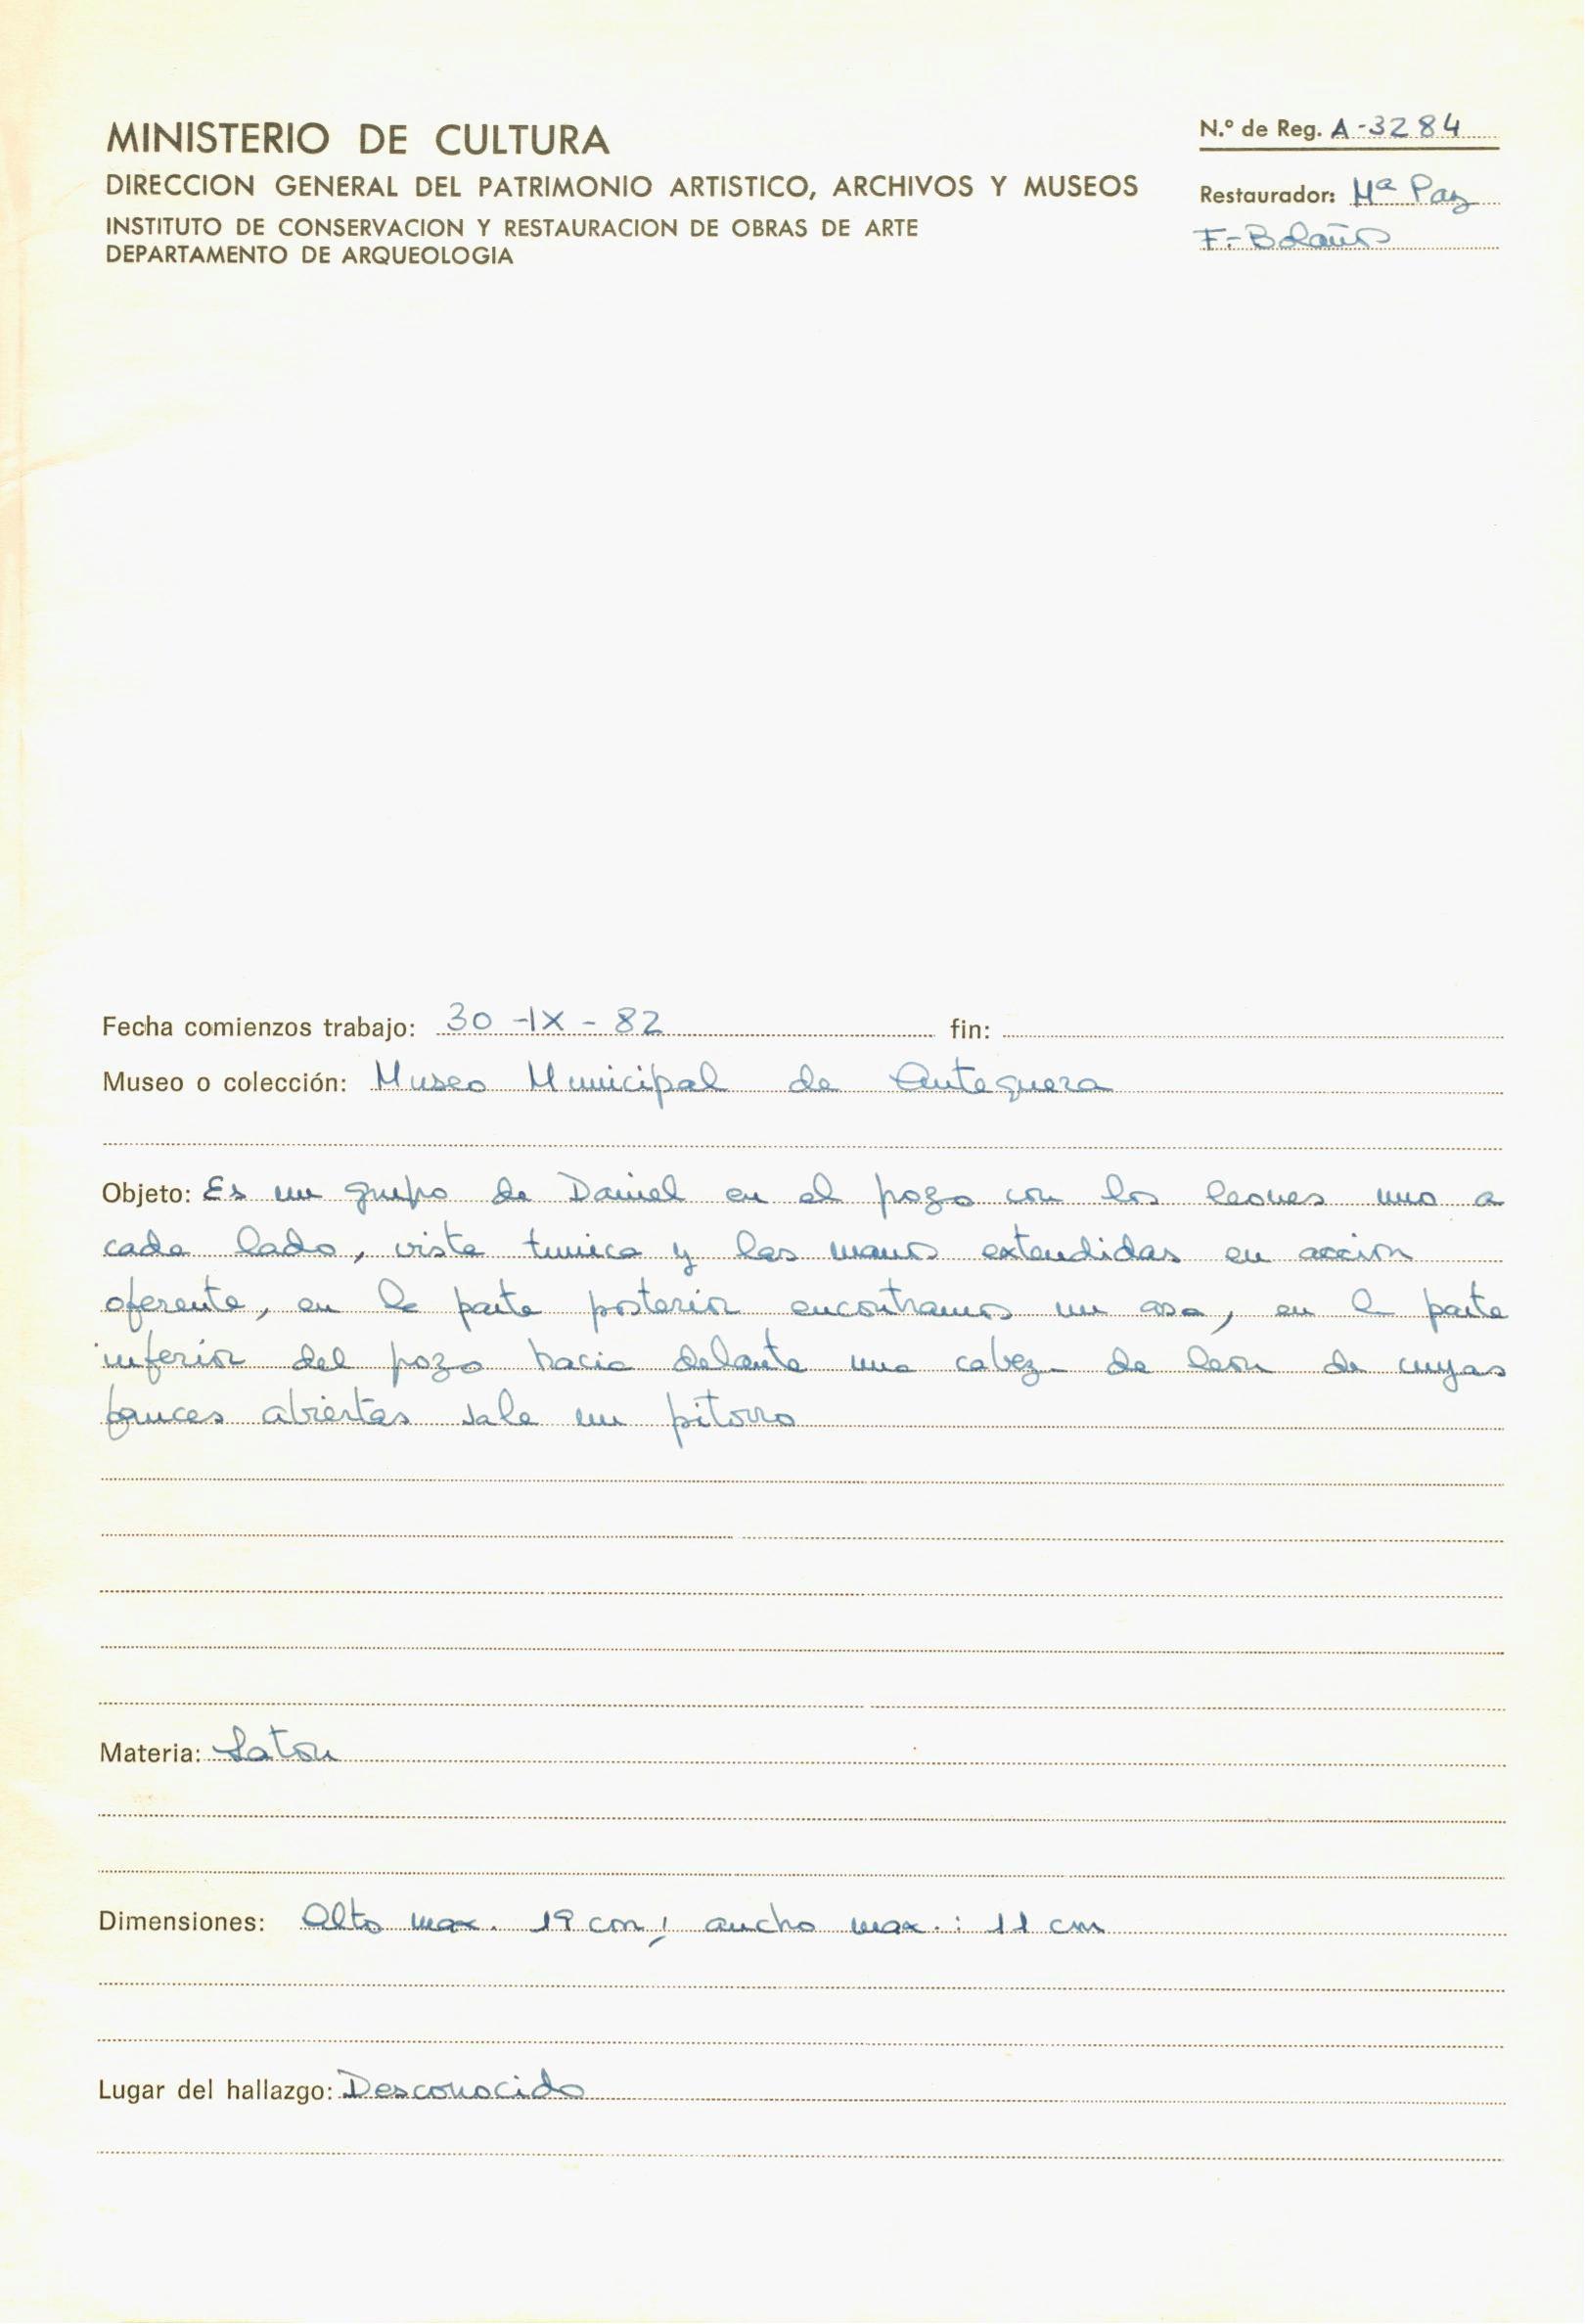 MINISTERIO DE CULTURA
DIRECCION GENERAL DEL PATRIMONIO ARTISTICO, ARCHIVOS Y MUSEOS
INSTITUTO DE CONSERVACION Y RESTAURACION DE OBRAS DE ARTE
DEPARTAMENTO DE ARQUEOLOGIA
N.º de Reg. A-3284
Restaurador: Mª Paz
F.-Bolaños
Fecha comienzos trabajo: 30-IX-82 fin:
Museo o colección: Museo Municipal de Antequera
Objeto: Es un grupo de Daniel en el pozo con los leones uno a
cada lado, viste tunica y las manos extendidas en acción
oferente, en la parte posterior encontramos un asa, en la parte
inferior del pozo hacia delante una cabeza de leon de cuyas
fauces abiertas sale un pitorro
Materia: Laton
Dimensiones: Alto max. 19 cm; ancho max.: 11 cm
Lugar del hallazgo: Desconocido